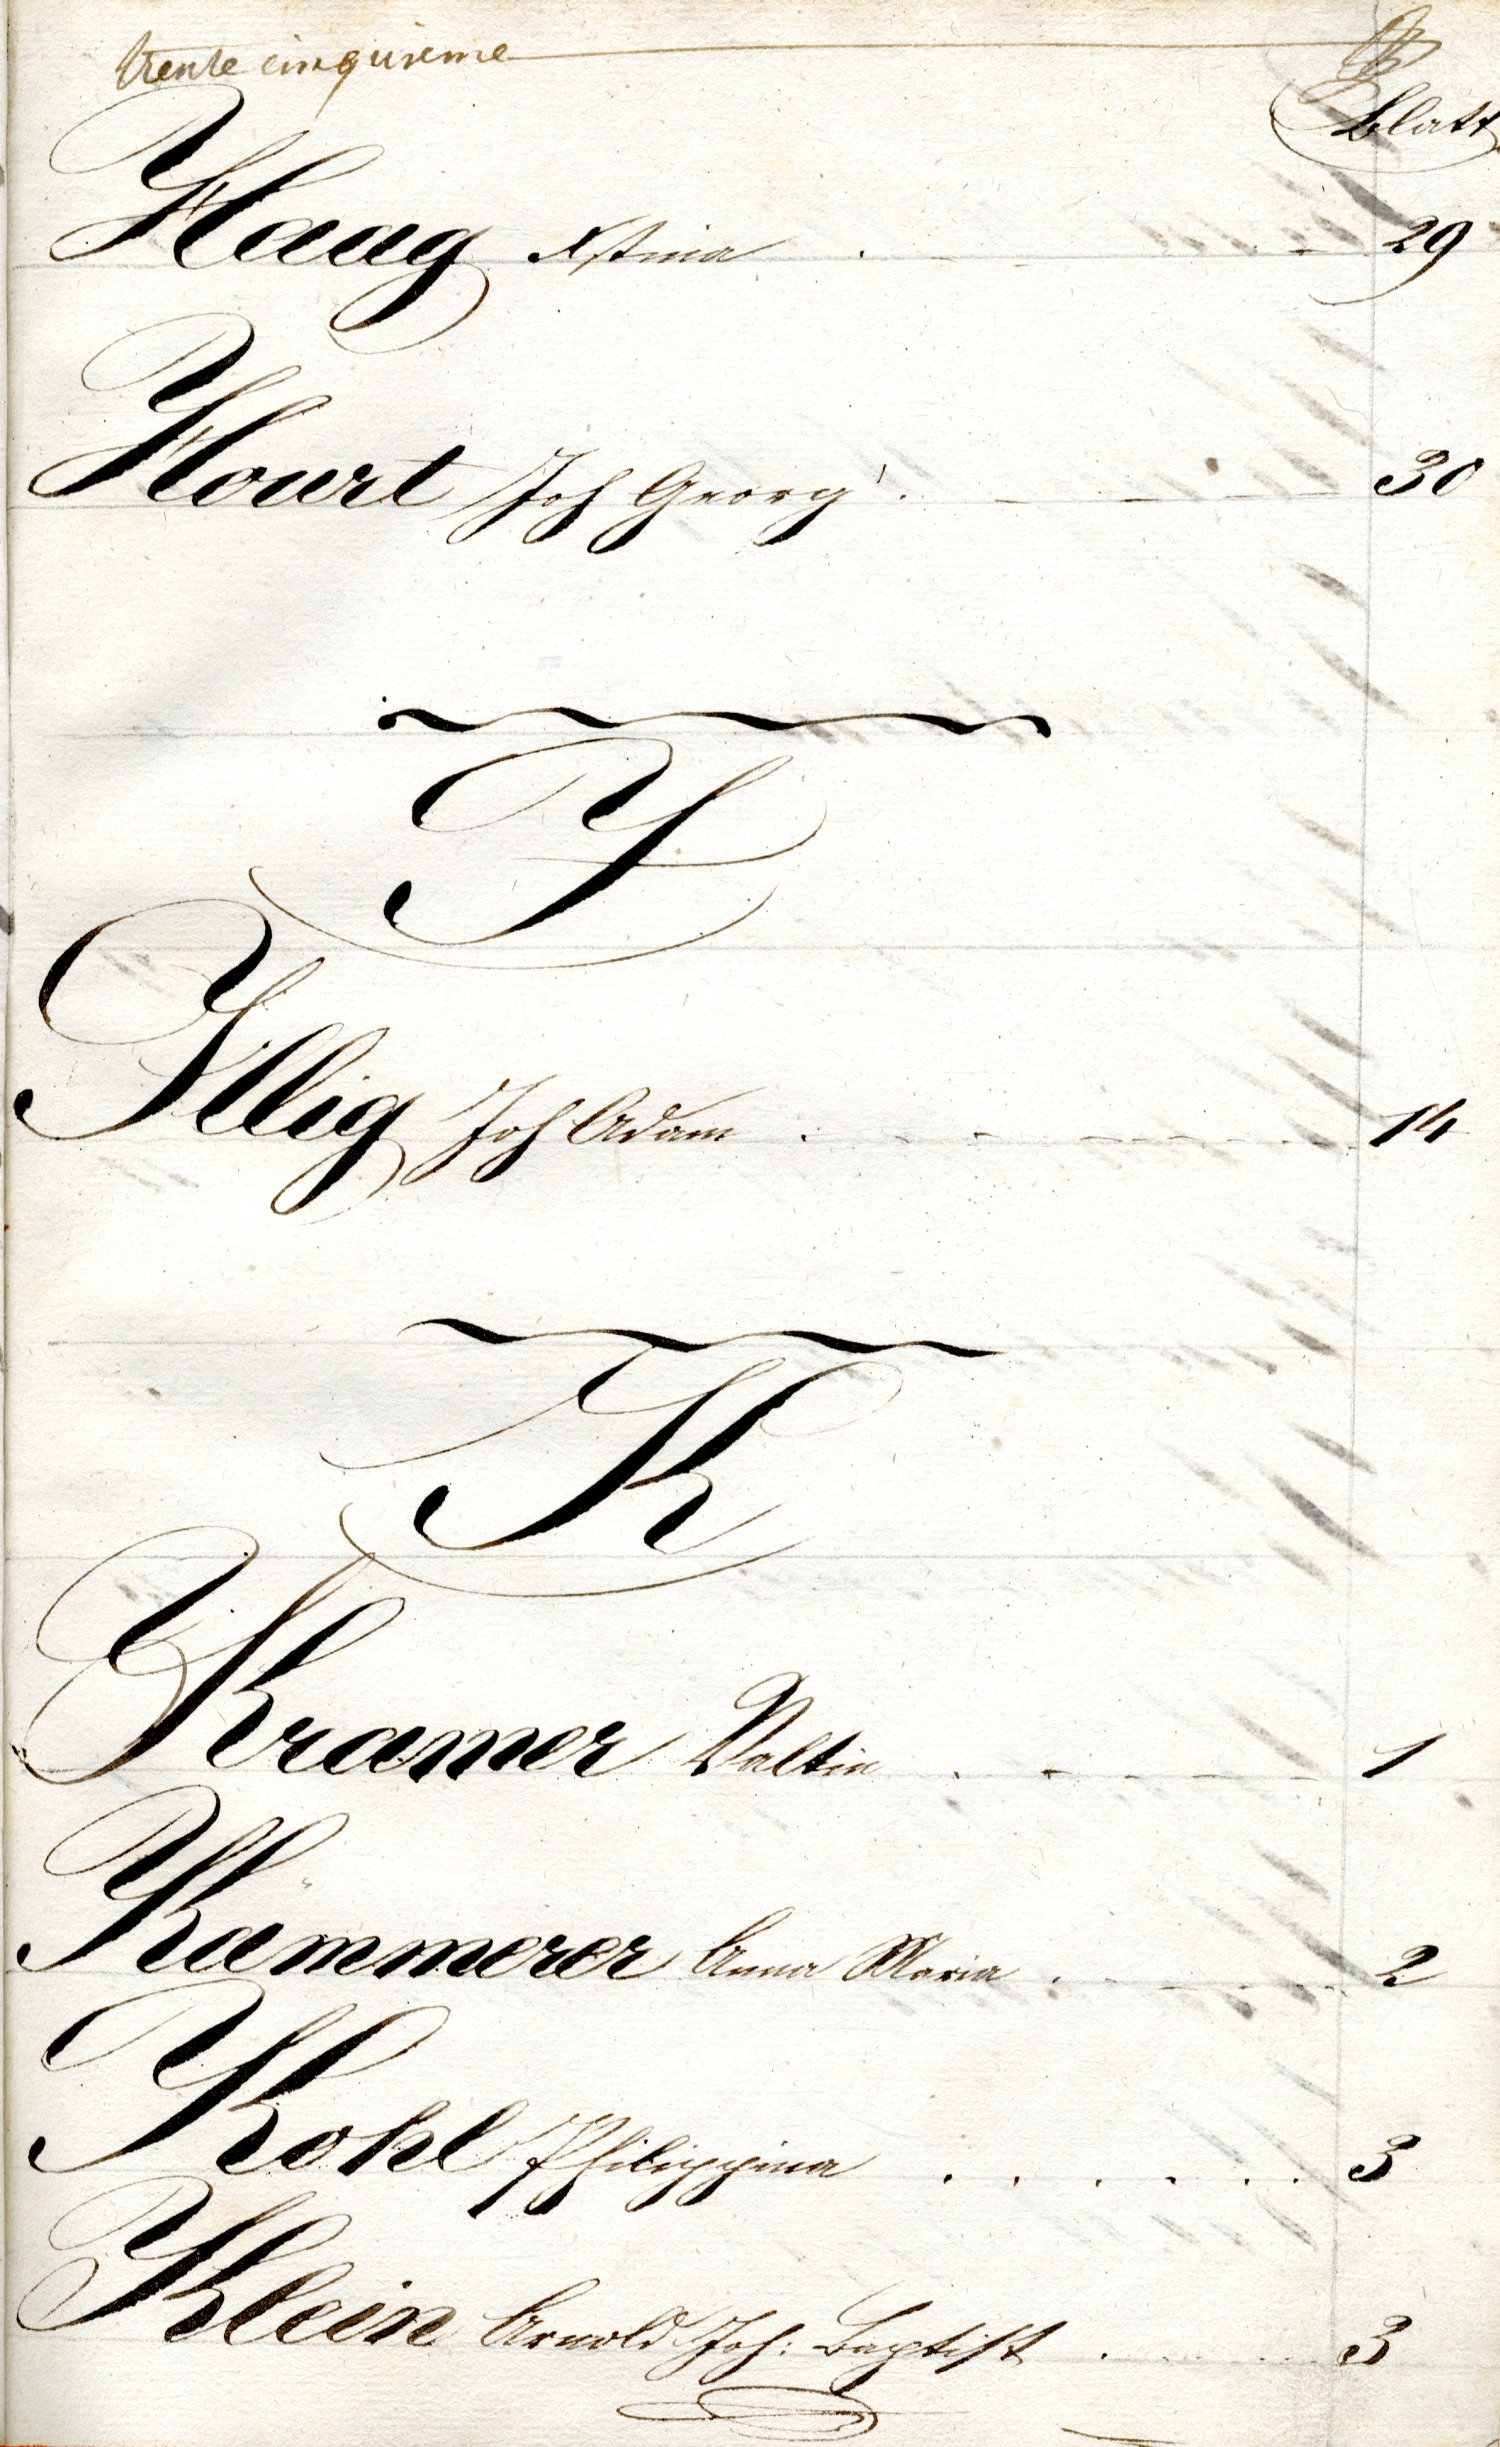 trente cinquieme
Blatt
Haag Xstina 29
Hourt Joh Georg 30
I
Illig Joh Adam 14
K
Kramer Valtin 1
Kämmerer Anna Maria 2
Kohl Philippina 3
Klein Arnold Joh: Baptist 3